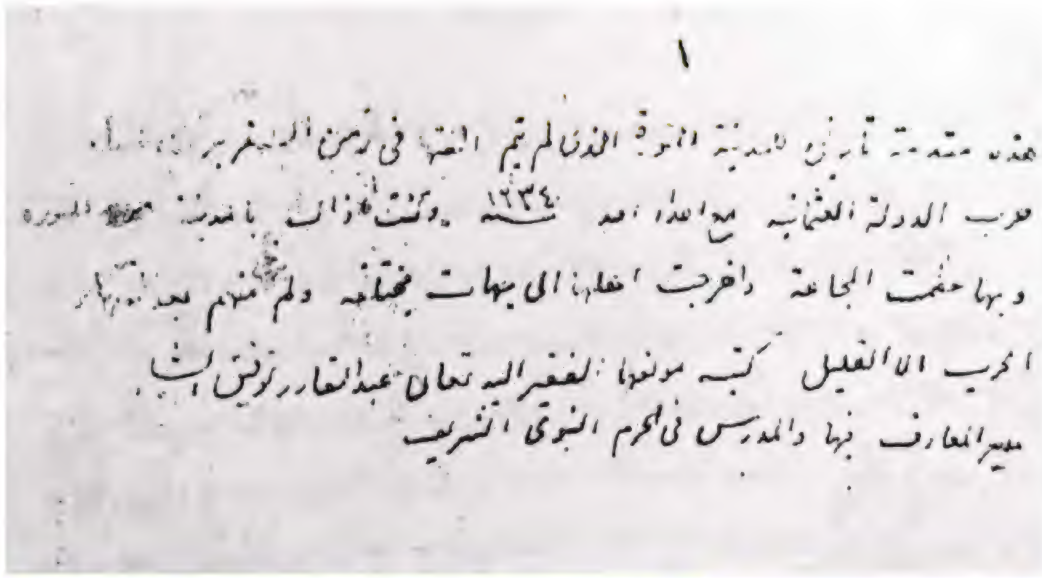 ١
هذه مقدمة تاريخ المدينة المنورة الذي لم يتم الفتها في زمن
حرب الدولة العثمانية مع اعداء سنة ١٢٣٤ وكنت اذ ذاك بالمدينة المنورة
وبها عظمت المجاعة واخرجت اهلها الى جهات مختلفة ولم منهم بعد
الحرب الا القليل كتبه مؤلفها الفقير اليه تعالى عبد القادر توفيق
مدير المعارف فيها والمدرس في الحرم النبوي الشريف